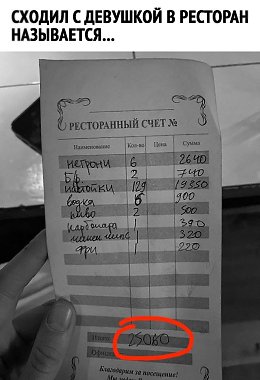 СХОДИЛ С ДЕВУШКОЙ В РЕСТОРАН
НАЗЫВАЕТСЯ...
РЕСТОРАННЫЙ СЧЕТ №
Наименование Кол-во Цена Сумма
негрони 6 2640
Б/р 2 740
настойки 129 19350
водка 6 900
пиво 2 500
карбонара 1 390
1 320
фри 1 220
Итого 25060
Благодарим за посещение!